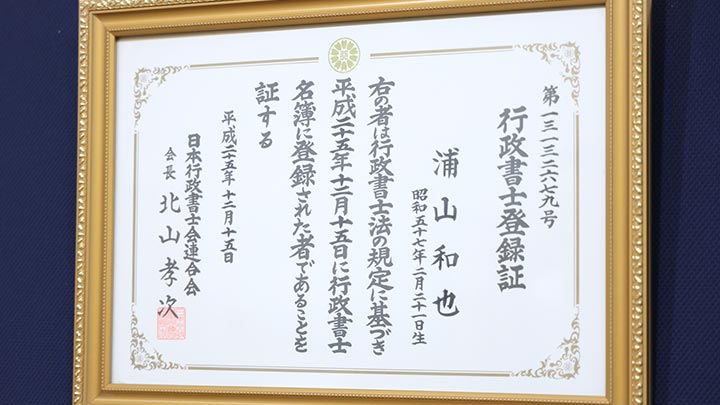 第一三一三二六七九号
行政書士登録証
浦山和也
昭和五十七年二月二十一日生
右の者は行政書士法の規定に基づき
平成二十五年十二月十五日に行政書士
名簿に登録された者であることを
証する
平成二十五年十二月十五日
日本行政書士会連合会
会長 北山孝次